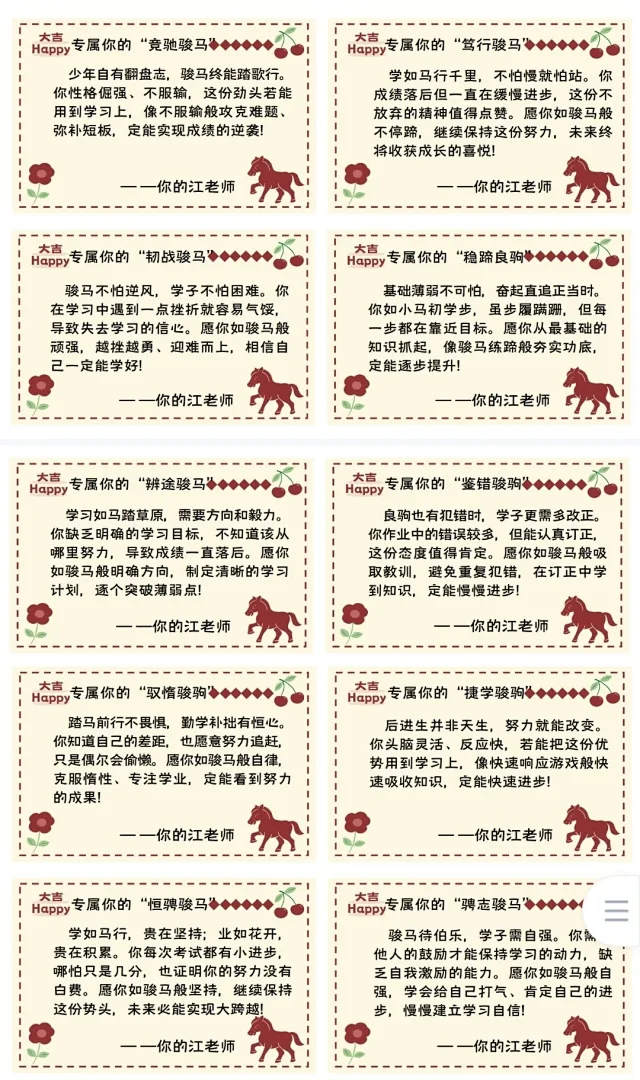 大吉
Happy
专属你的“竞驰骏马”
少年自有翻盘志，骏马终能踏歌行。
你性格倔强、不服输，这份劲头若能
用到学习上，像不服输般攻克难题、
弥补短板，定能实现成绩的逆袭!
——你的江老师
大吉
Happy
专属你的“笃行骏马”
学如马行千里，不怕慢就怕站。你
成绩落后但一直在缓慢进步，这份不
放弃的精神值得点赞。愿你如骏马般
不停蹄，继续保持这份努力，未来终
将收获成长的喜悦!
——你的江老师
大吉
Happy
专属你的“韧战骏马”
骏马不怕逆风，学子不怕困难。你
在学习中遇到一点挫折就容易气馁，
导致失去学习的信心。愿你如骏马般
顽强，越挫越勇、迎难而上，相信自
己一定能学好!
——你的江老师
大吉
Happy
专属你的“稳蹄良驹”
基础薄弱不可怕，奋起直追正当时。
你如小马初学步，虽步履蹒跚，但每
一步都在靠近目标。愿你从最基础的
知识抓起，像骏马练蹄般夯实功底，
定能逐步提升!
——你的江老师
大吉
Happy
专属你的“辨途骏马”
学习如马踏草原，需要方向和毅力。
你缺乏明确的学习目标，不知道该从
哪里努力，导致成绩一直落后。愿你
如骏马般明确方向，制定清晰的学习
计划，逐个突破薄弱点!
——你的江老师
大吉
Happy
专属你的“鉴错骏驹”
良驹也有犯错时，学子更需多改正。
你作业中的错误较多，但能认真订正，
这份态度值得肯定。愿你如骏马般吸
取教训，避免重复犯错，在订正中学
到知识，定能慢慢进步!
——你的江老师
大吉
Happy
专属你的“驭惰骏驹”
踏马前行不畏惧，勤学补拙有恒心。
你知道自己的差距，也愿意努力追赶，
只是偶尔会偷懒。愿你如骏马般自律，
克服惰性、专注学业，定能看到努力
的成果!
——你的江老师
大吉
Happy
专属你的“捷学骏驹”
后进生并非天生，努力就能改变。
你头脑灵活、反应快，若能把这份优
势用到学习上，像快速响应游戏般快
速吸收知识，定能快速进步!
——你的江老师
大吉
Happy
专属你的“恒骋骏马”
学如马行，贵在坚持；业如花开，
贵在积累。你每次考试都有小进步，
哪怕只是几分，也证明你的努力没有
白费。愿你如骏马般坚持，继续保持
这份势头，未来必能实现大跨越!
——你的江老师
大吉
Happy
专属你的“骋志骏马”
骏马待伯乐，学子需自强。你需
他人的鼓励才能保持学习的动力，缺
乏自我激励的能力。愿你如骏马般自
强，学会给自己打气、肯定自己的进
步，慢慢建立学习自信!
——你的江老师